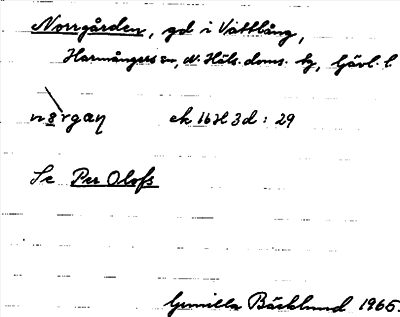 Norrgården, gd i Vattlång,
Harmångers sn, N. Häls. doms. tg, Gävl. l.
nørgaɳ ek 16H 3d : 29
Se Per Olofs
Gunilla Bäcklund 1965.